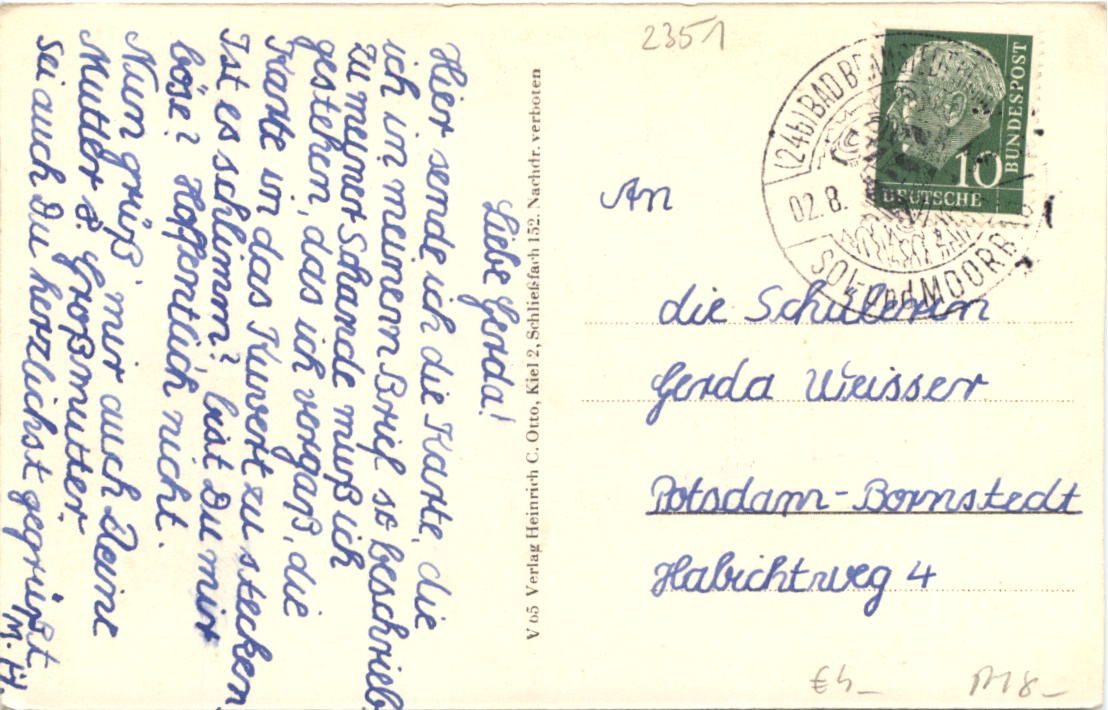 Liebe Gerda!
Hier sende ich die Karte, die
ich in meinem Brief so beschrieb.
Zu meiner Schande muß ich
gestehen, das ich vergaß, die
Karte in das Kuvert zu stecken
Ist es schlimm? bist Du mir
böse? Hoffentlich nicht.
Nun grüß' mir auch Deine
Mutter & Großmutter.
Sei auch Du herzlichst gegrüßt
M. H.
V 65 Verlag Heinrich C. Otto, Kiel 2, Schließfach 152. Nachdr. verboten
2351
(24b) BAD BRAMSTEDT
02.8.
SOL- und MOORBAD
10
DEUTSCHE
BUNDESPOST
An
die Schülerin
Gerda Weisser
Potsdam-Bornstedt
Habichtweg 4